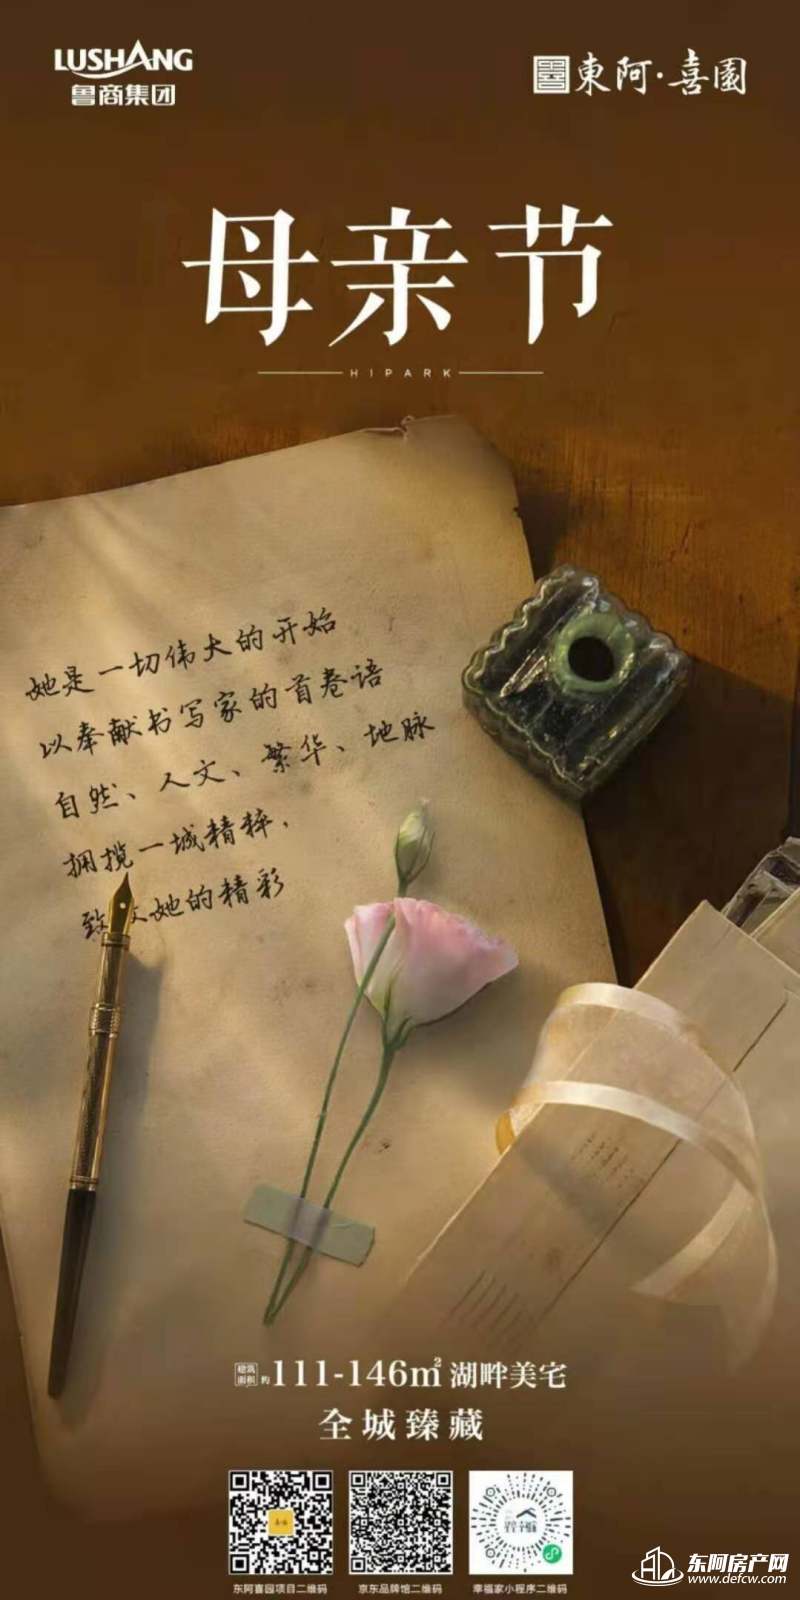 LUSHANG
鲁商集团
東阿·喜園
母亲节
HIPARK
她是一切伟大的开始
以奉献书写家的首卷语
自然、人文、繁华、地脉
拥揽一城精粹，
致 她的精彩
建筑面积 约 111-146㎡ 湖畔美宅
全城臻藏
东阿喜园项目二维码
京东品牌馆二维码
幸福家小程序二维码
东阿房产网
www.defcw.com